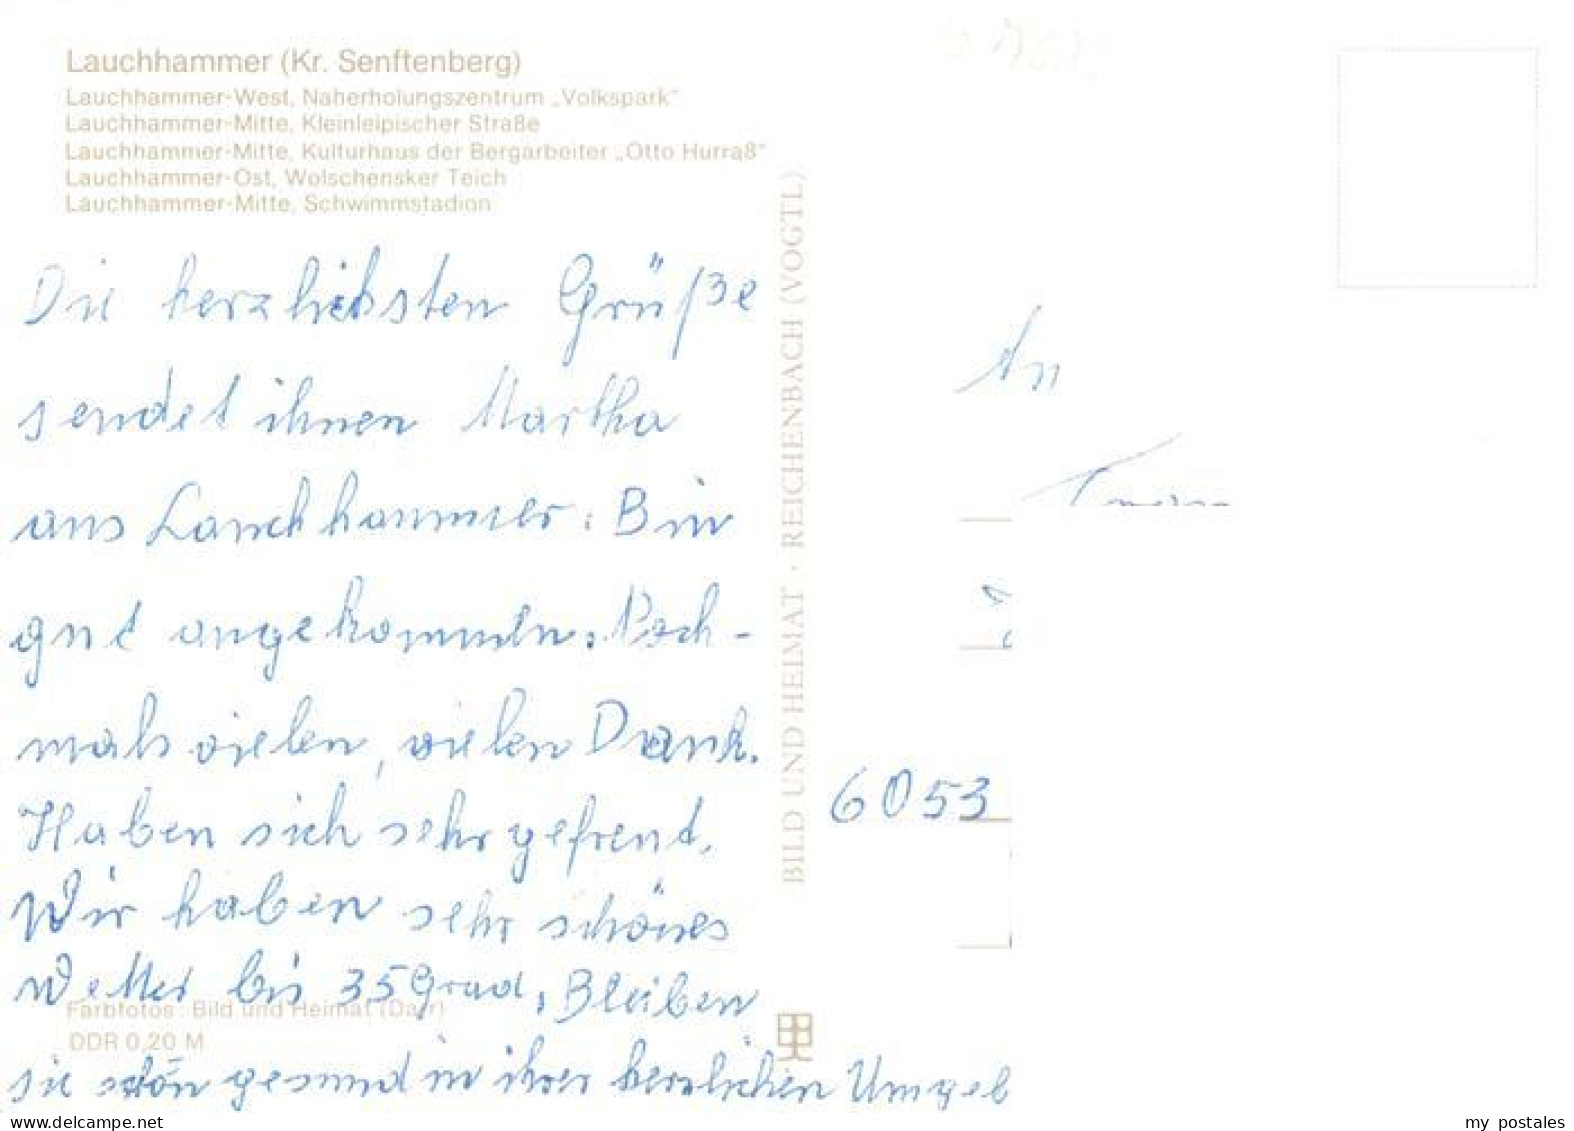 Lauchhammer (Kr. Senftenberg)
Lauchhammer-West, Naherholungszentrum „Volkspark"
Lauchhammer-Mitte, Kleinleipischer Straße
Lauchhammer-Mitte, Kulturhaus der Bergarbeiter „Otto Hurraß"
Lauchhammer-Ost, Wolschensker Teich
Lauchhammer-Mitte, Schwimmstadion
Die herzlichsten Grüße
sendet ihnen Martha
aus Lauchhammer. Bin
gut angekommen. Noch-
mals vielen, vielen Dank.
Haben sich sehr gefreut.
Wir haben sehr schönes
Wetter bis 35 Grad. Bleiben
sie schön gesund in ihrer herzlichen Umgeb
Farbfotos: Bild und Heimat (Darr)
DDR 0,20 M
BILD UND HEIMAT · REICHENBACH (VOGTL)
An
6053
www.delcampe.net
my postales